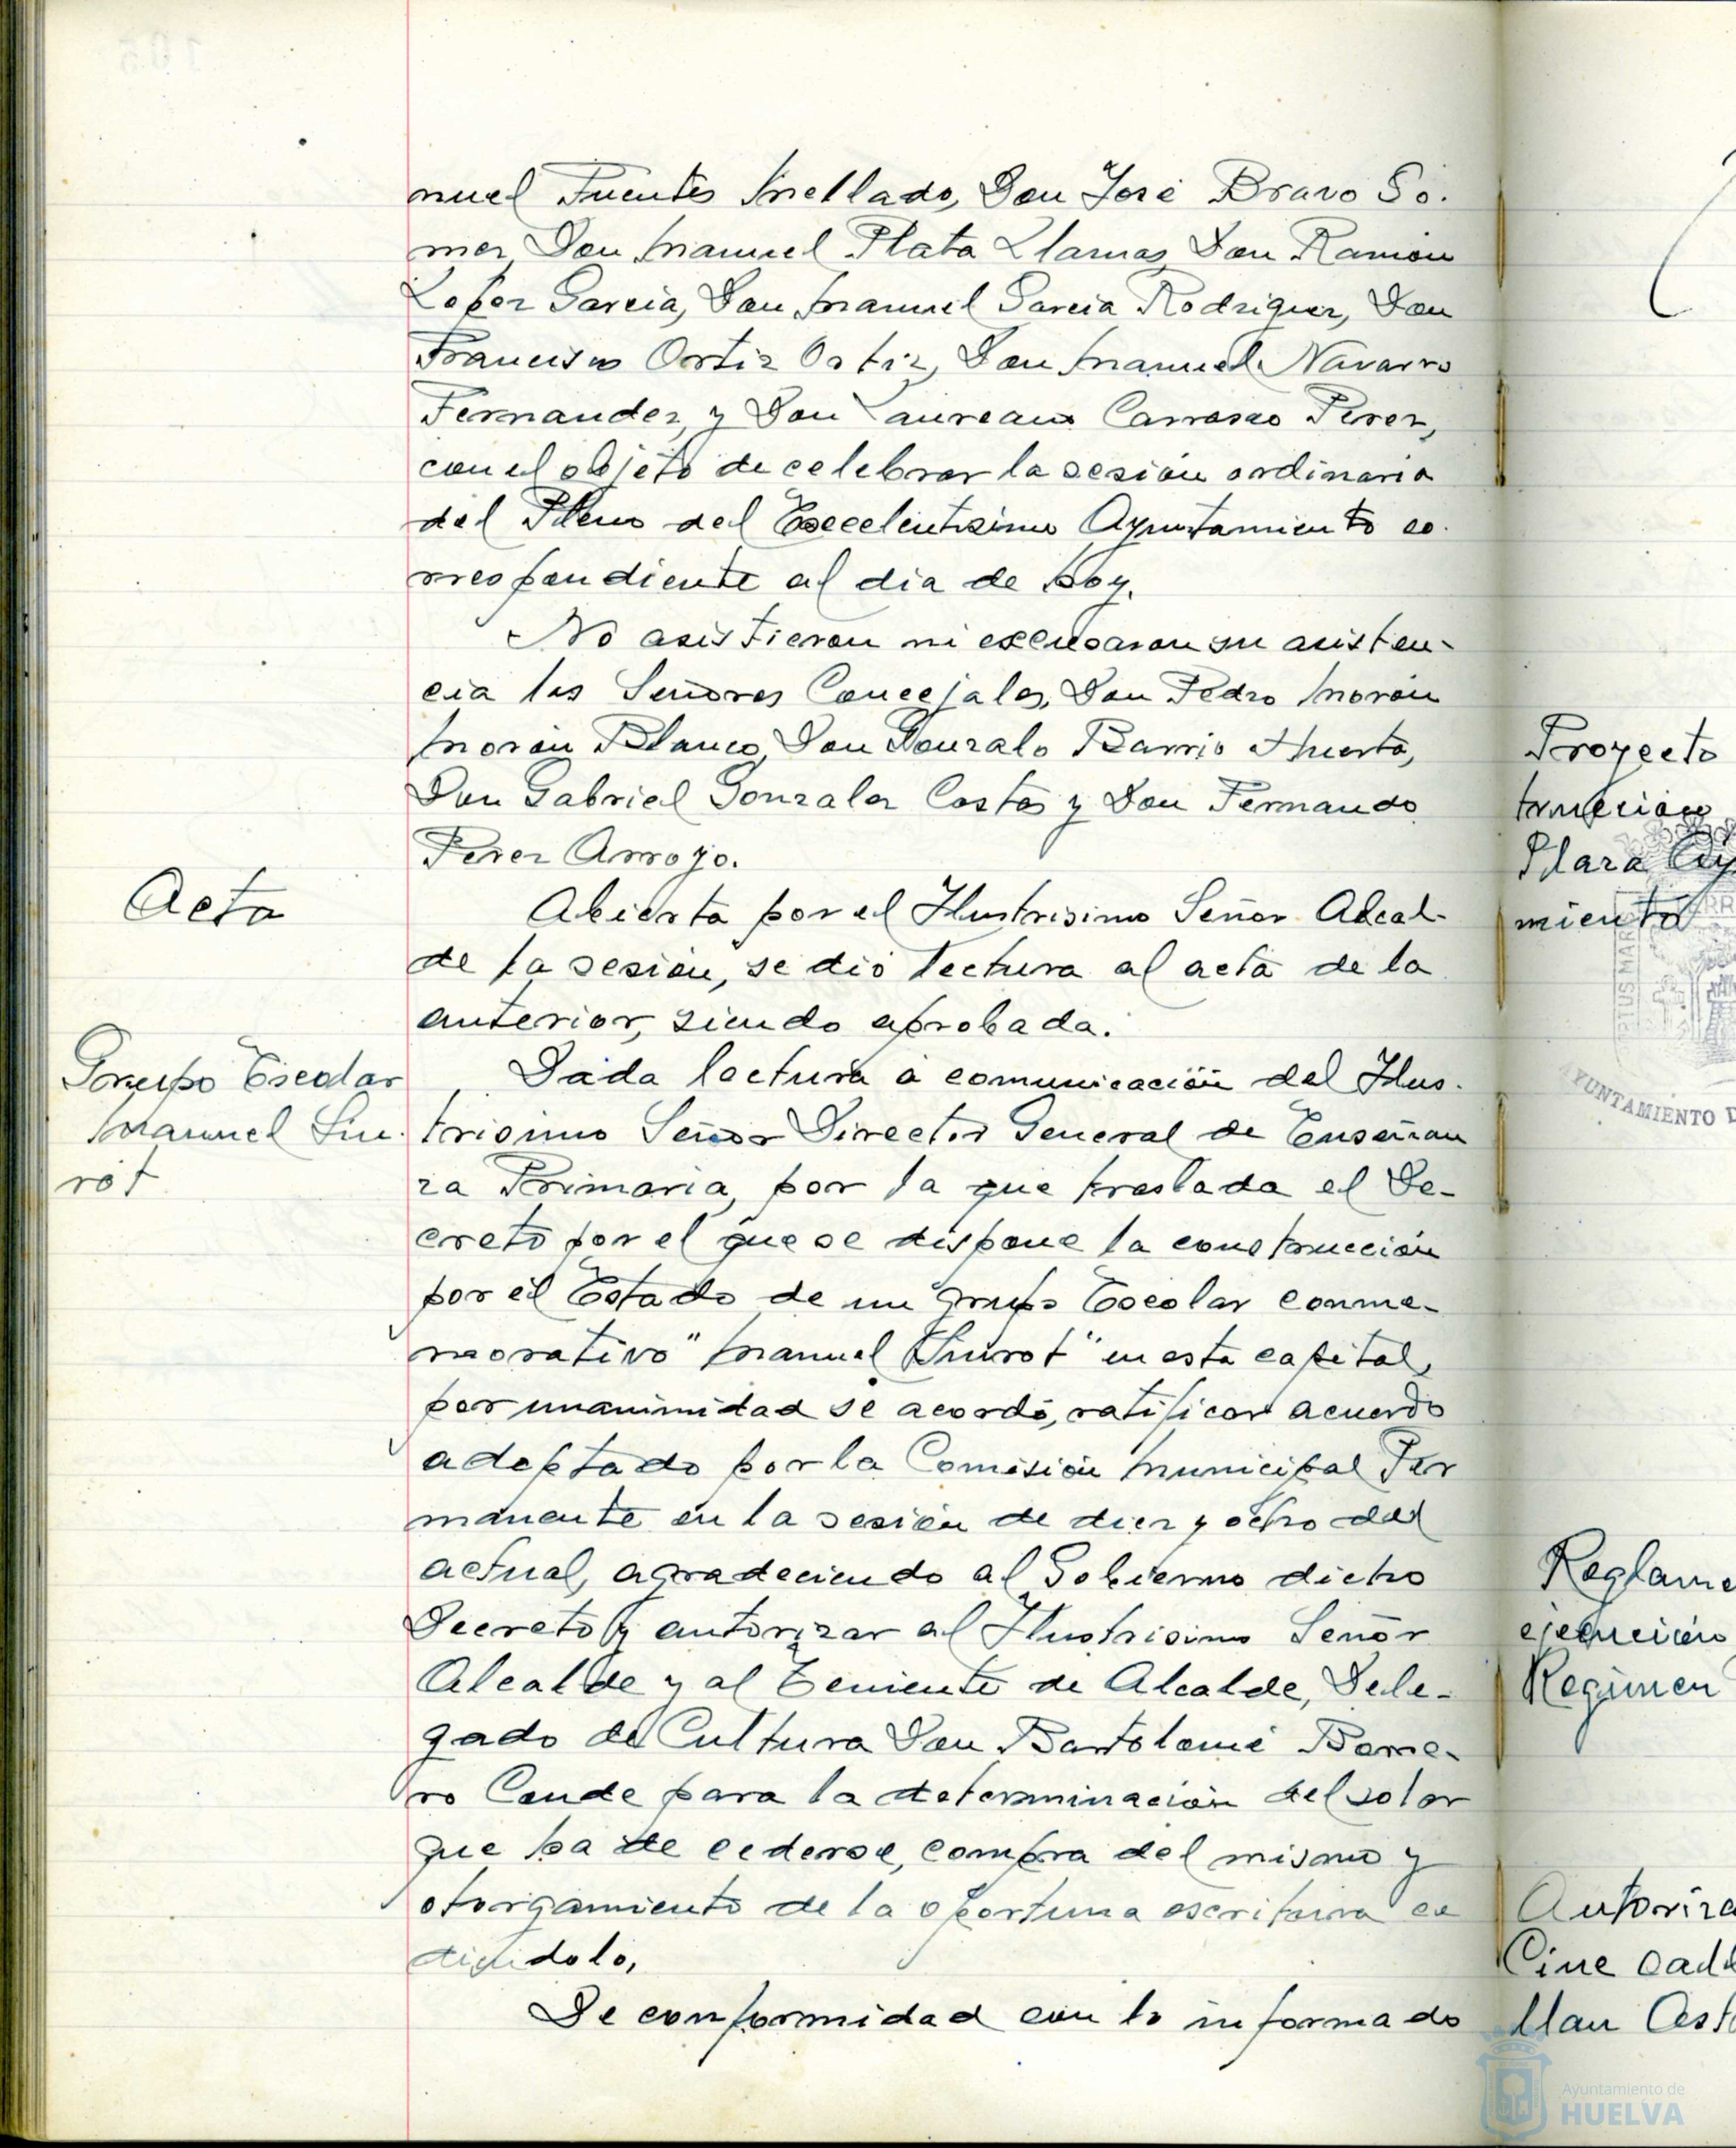 nuel Fuentes Mellado, Don José Bravo Gó-
mez, Don Manuel Plata Llamas, Don Ramón
Lopez Garcia, Don Manuel Garcia Rodriguez, Don
Francisco Ortiz Ortiz, Don Manuel Navarro
Fernandez, y Don Laureano Carrasco Perez,
con el objeto de celebrar la sesión ordinaria
del Pleno del Excelentisimo Ayuntamiento co-
rrespondiente al dia de hoy.
No asistieron ni excusaron su asisten-
cia los Señores Concejales, Don Pedro Morón
Morón Blanco, Don Gonzalo Barrio Huerta,
Don Gabriel Gonzalez Costas y Don Fernando
Perez Arroyo.
Acta
Abierta por el Ilustrisimo Señor Alcal-
de la sesión, se dió lectura al acta de la
anterior, siendo aprobada.
Grupo Escolar
Manuel Siu-
rot
Dada lectura a comunicación del Ilus-
trisimo Señor Director General de Enseñan
za Primaria, por la que traslada el De-
creto por el que se dispone la construcción
por el Estado de un grupo Escolar conme-
morativo "Manuel Siurot" en esta capital,
por unanimidad se acordó, ratificar acuerdo
adoptado por la Comisión Municipal Per
manente en la sesión de diez y ocho del
actual, agradeciendo al Gobierno dicho
Decreto y autorizar al Ilustrisimo Señor
Alcalde y al Teniente de Alcalde, Dele-
gado de Cultura Don Bartolomé Rome-
ro Conde para la determinación del solar
que ha de cederse, compra del mismo y
otorgamiento de la oportuna escritura ce
diendolo.
De conformidad con lo informado
Proyecto
trucción
Plaza Ay
miento
AYUNTAMIENTO D
Reglame
ejecución
Regimen
Autoriza
Cine call
llan Ast
Ayuntamiento de
HUELVA